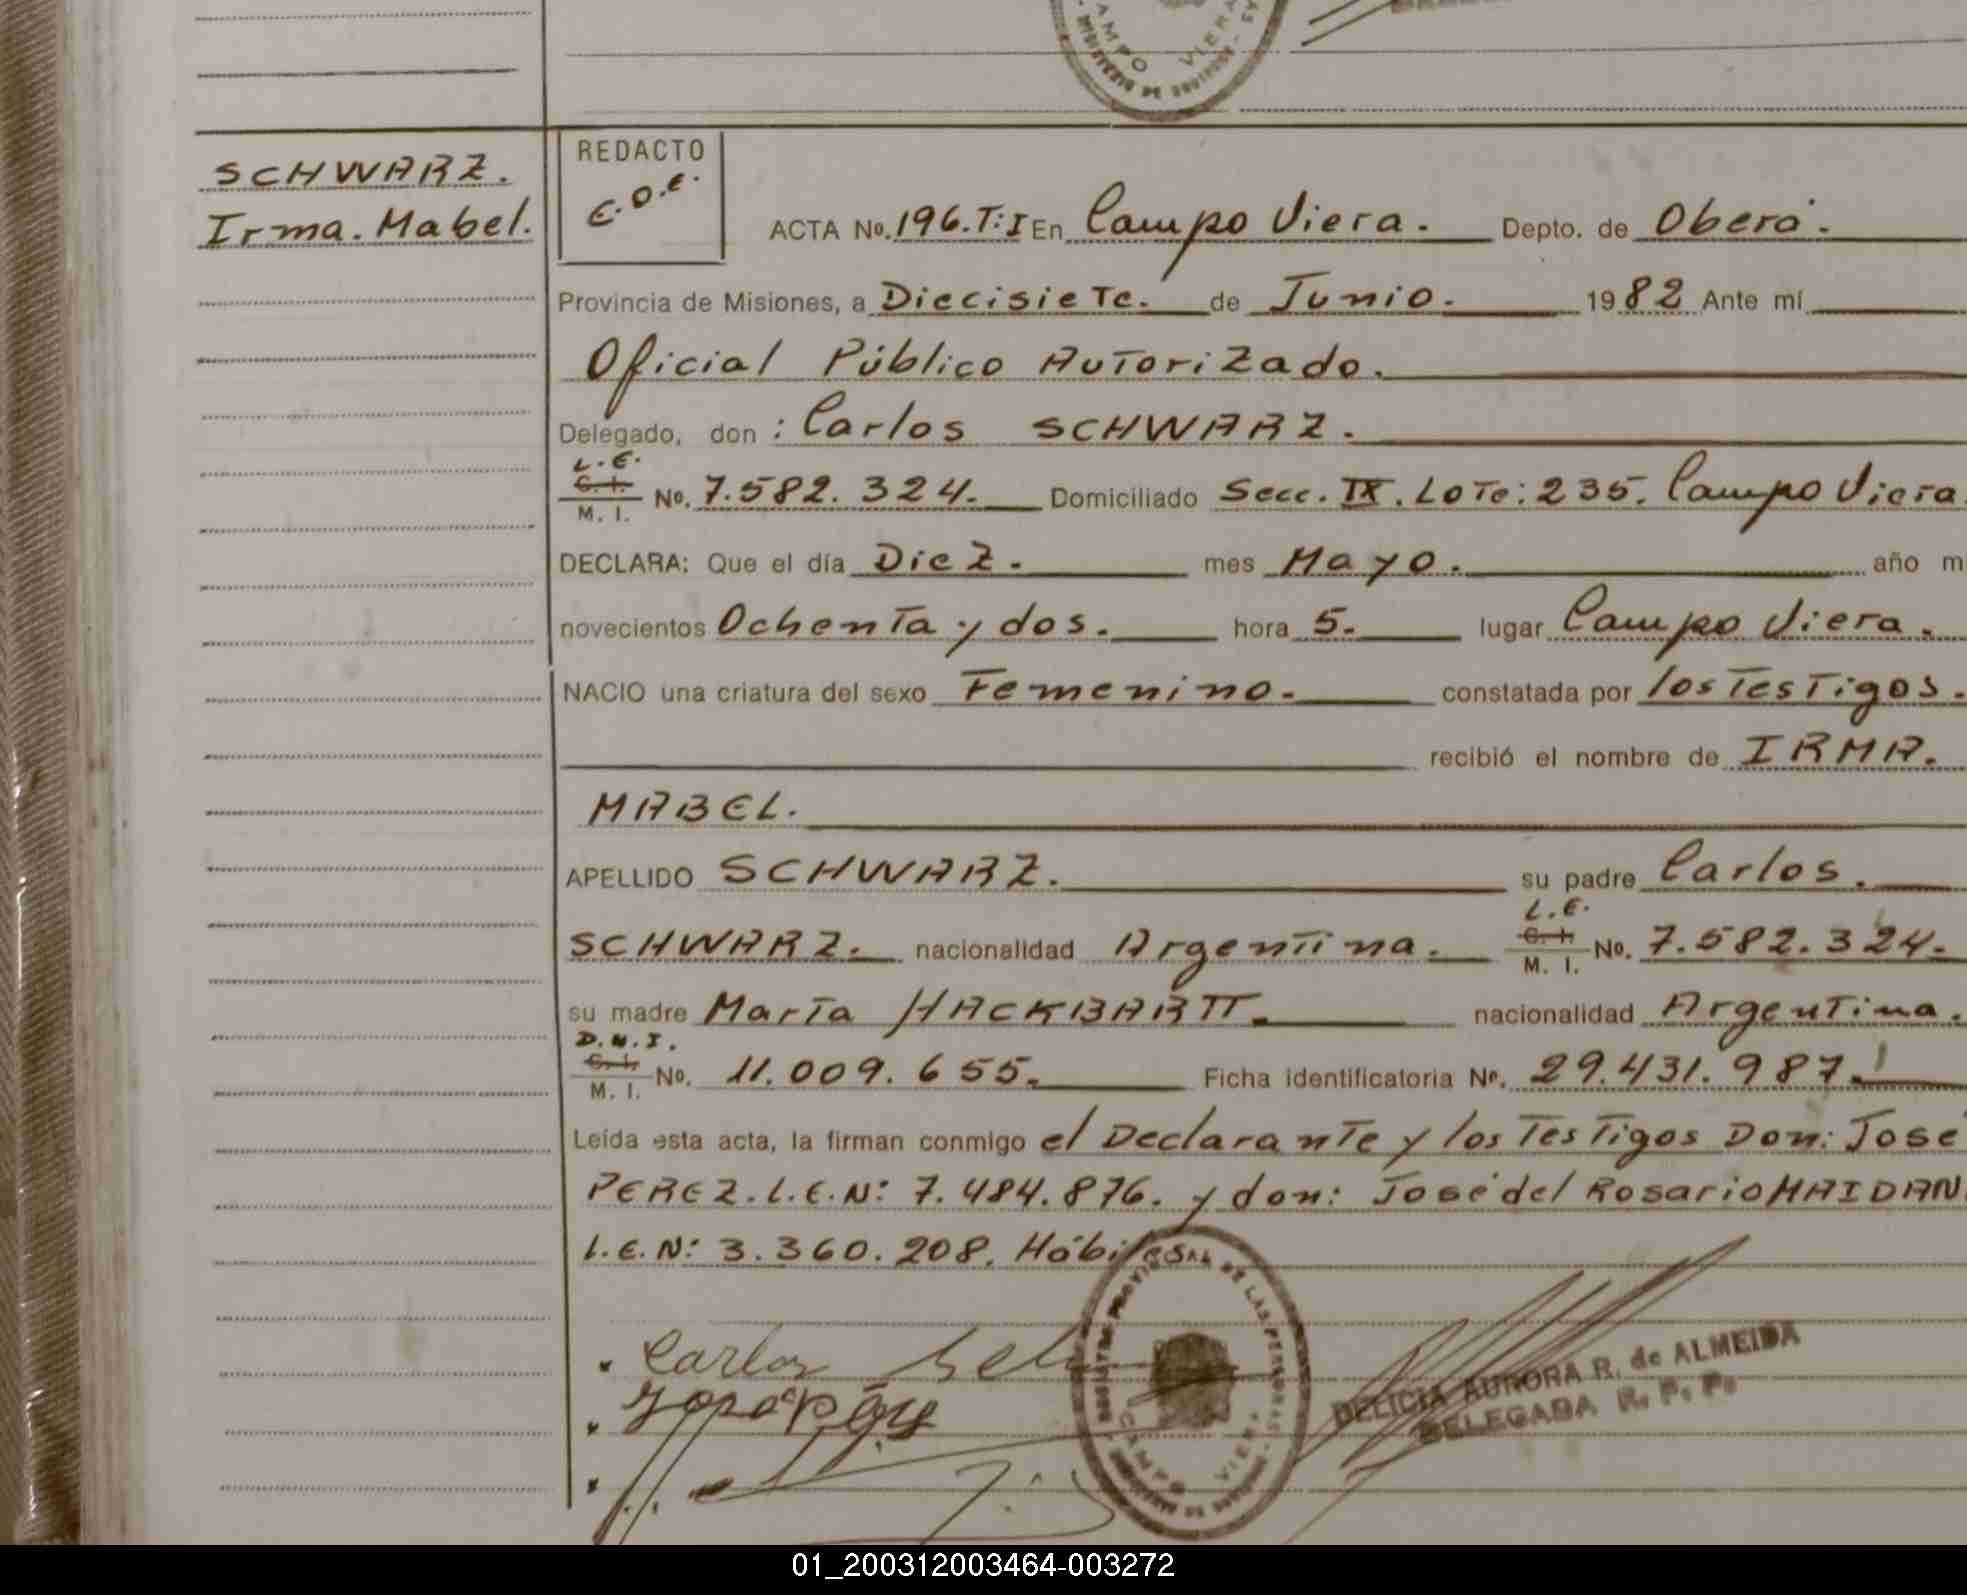 CAMPO VIERA
SCHWARZ.
Irma. Mabel.
REDACTO
E.O.E.
ACTA No. 196.T:I En Campo Viera. Depto. de Oberá.
Provincia de Misiones, a Diecisiete. de Junio. 1982 Ante mí
Oficial Público Autorizado.
Delegado, don : Carlos SCHWARZ.
L.E.
C. I.
M. I. No. 7.582.324. Domiciliado Secc. IX. Lote: 235. Campo Viera.
DECLARA: Que el día Diez. mes Mayo. año m
novecientos Ochenta y dos. hora 5. lugar Campo Viera.
NACIO una criatura del sexo Femenino. constatada por los Testigos.
recibió el nombre de IRMA.
MABEL.
APELLIDO SCHWARZ. su padre Carlos.
L.E.
SCHWARZ. nacionalidad Argentina. C. I. M. I. No. 7.582.324.
su madre María HACKBARTT. nacionalidad Argentina.
D.N.I.
C. I.
M. I. No. 11.009.655. Ficha identificatoria No. 29.431.987.
Leída esta acta, la firman conmigo el Declarante y los Testigos Don: José
PEREZ. L.E.N: 7.484.876. y don: José del Rosario MAIDAN
L.E.N: 3.360.208. Hábiles
Carlos
CAMPO VIERA
DELICIA AURORA R. de ALMEIDA
DELEGADA R. P. P.
01_200312003464-003272